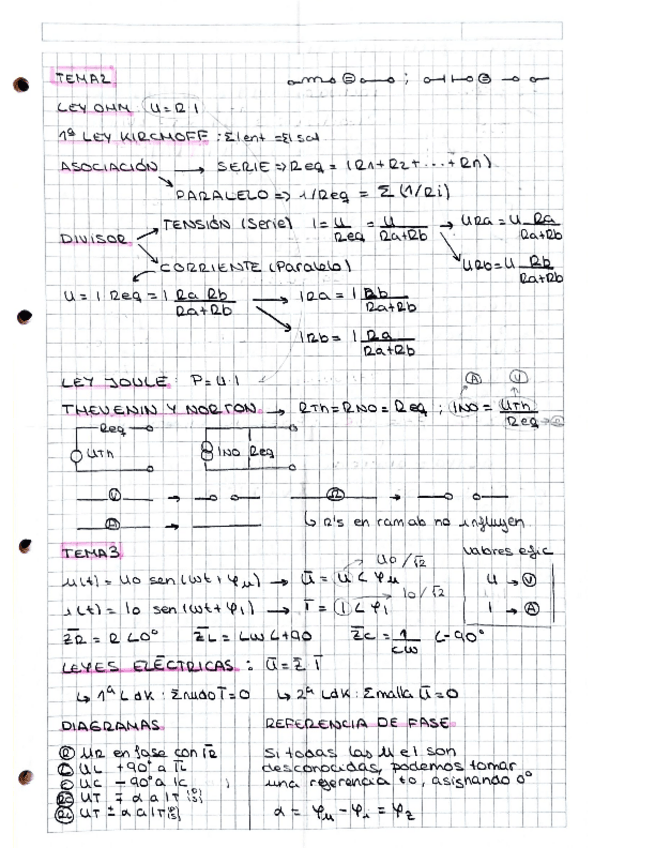 TEMA2
LEY OHM U=R I
1ª LEY KIRCHOFF : ΣIent = ΣI sal
ASOCIACIÓN → SERIE => Req = (R1+R2+...+Rn)
PARALELO => 1/Req = Σ(1/Ri)
DIVISOR → TENSIÓN (Serie) I = U/Req = U/Ra+Rb → URa = U Ra/Ra+Rb
URb = U Rb/Ra+Rb
CORRIENTE (Paralelo)
U = I Req = I Ra Rb/Ra+Rb → IRa = I Rb/Ra+Rb
IRb = I Ra/Ra+Rb
LEY JOULE: P=U·I
A V
THEVENIN Y NORTON → RTh=RNO=Req ; INO = UTh/Req → Ω
Req
UTh INO Req
V → Ω →
A → ↳ R's en rama b no influyen
TEMA3
Valores efic
u(t) = U0 sen (wt + φu) → Ū = U ∠ φu U0/√2
U → V
i(t) = I0 sen (wt + φi) → Ī = I ∠ φi I0/√2
I → A
Z̄R = R ∠0° Z̄L = Lw ∠+90 Z̄C = 1/Cw ∠-90°
LEYES ELÉCTRICAS : Ū = Z̄ Ī
↳ 1ª LdK : Σnudo Ī = 0 ↳ 2ª LdK : Σmalla Ū = 0
DIAGRAMAS
REFERENCIA DE FASE
R UR en fase con ĪR
L UL +90° a ĪL
C UC -90° a IC
UT ∓ α a IT
UT ± α a IT
Si todas las U e I son
desconocidas, podemos tomar
una referencia t0, asignando 0°
α = φu - φi = φz